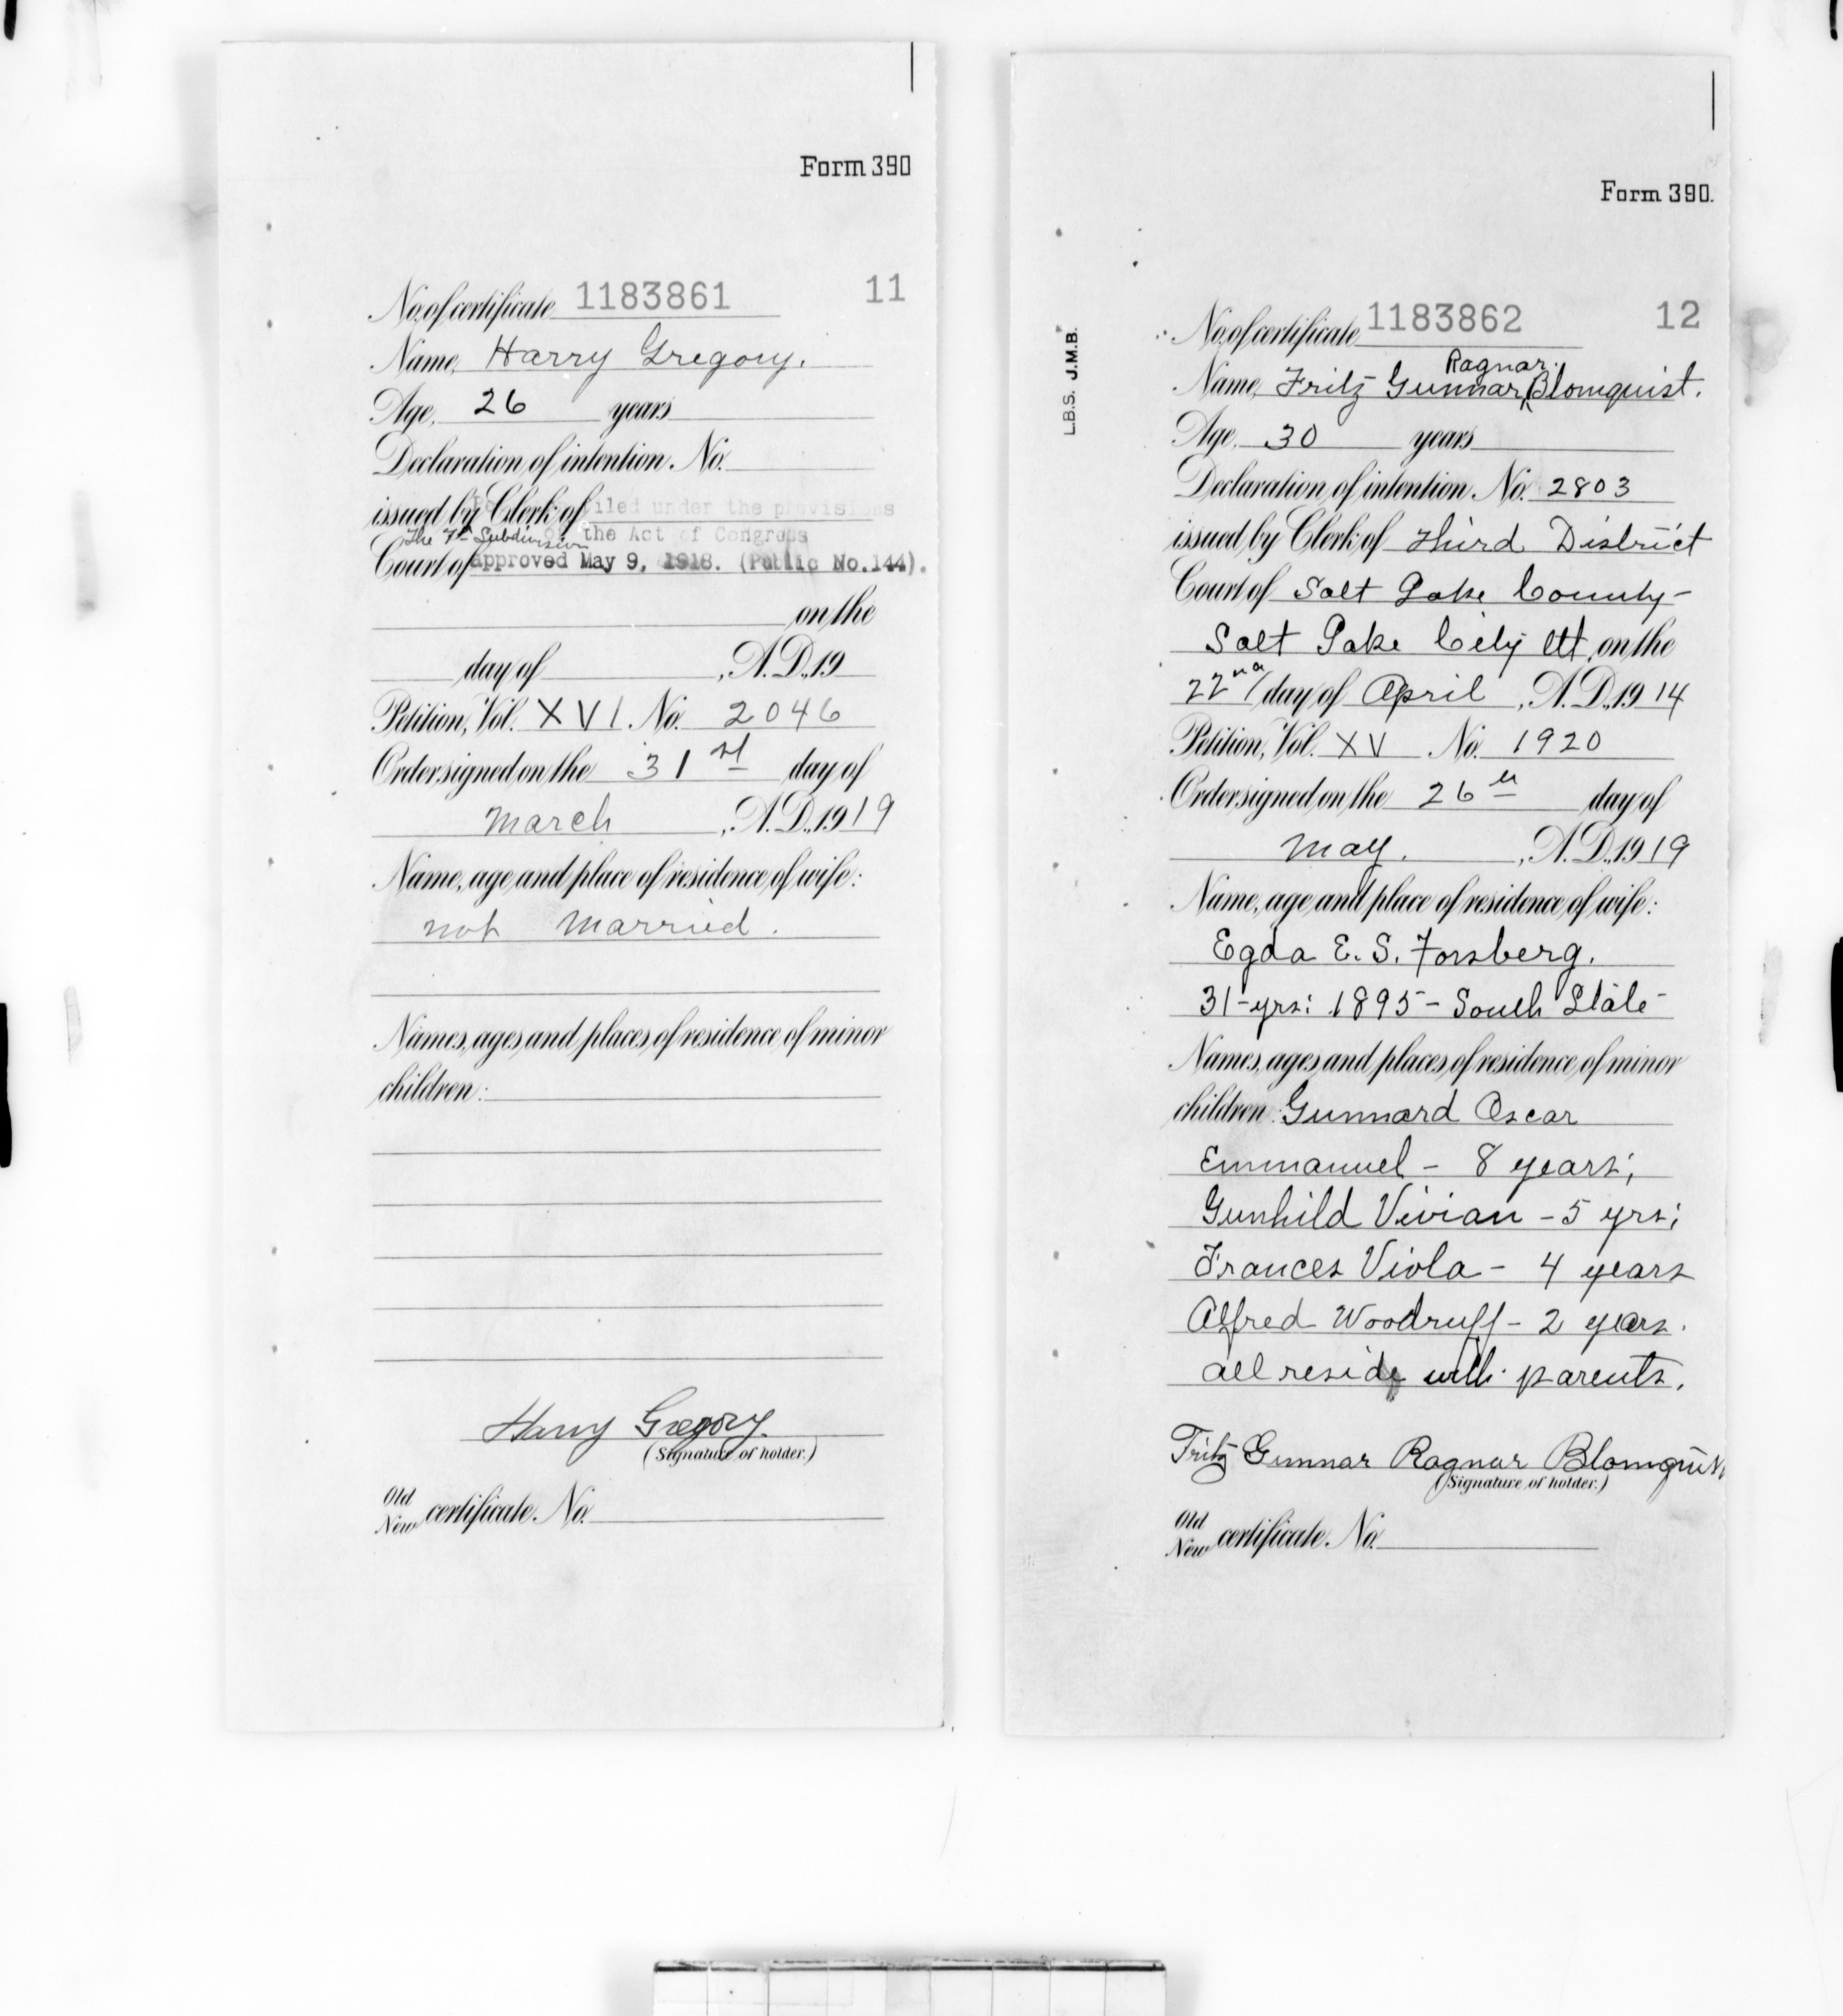 Form 390
No. of certificate 1183861 11
Name, Harry Gregory.
Age, 26 years
Declaration of intention, No.
issued by Clerk of filed under the provisions
The 7th Subdivision of the Act of Congress
Court of approved May 9, 1918. (Public No. 144).
on the
day of , A. D., 19
Petition, Vol. XVI. No. 2046
Order signed on the 31st day of
March , A. D., 1919
Name, age and place of residence of wife:
not married.
Names, ages and places of residence of minor
children:
Harry Gregory.
(Signature of holder.)
Old
New certificate No.
Form 390.
L.B.S. J.M.B.
No. of certificate, 1183862 12
Ragnar
Name, Fritz Gunnar Blomquist.
Age, 30 years
Declaration of intention, No. 2803
issued by Clerk of Third District
Court of Salt Lake County-
Salt Lake City Ut, on the
22nd day of April , A. D., 1914
Petition, Vol. XV No. 1920
Order signed on the 26th day of
May. , A. D., 1919
Name, age and place of residence of wife:
Egda E. S. Forsberg.
31-yrs: 1895- South State-
Names, ages and places of residence of minor
children: Gunnard Oscar
Emmanuel - 8 years;
Gunhild Vivian - 5 yrs;
Frances Viola - 4 years
Alfred Woodruff - 2 years.
all reside with parents.
Fritz Gunnar Ragnar Blomquist
(Signature of holder.)
Old
New certificate No.